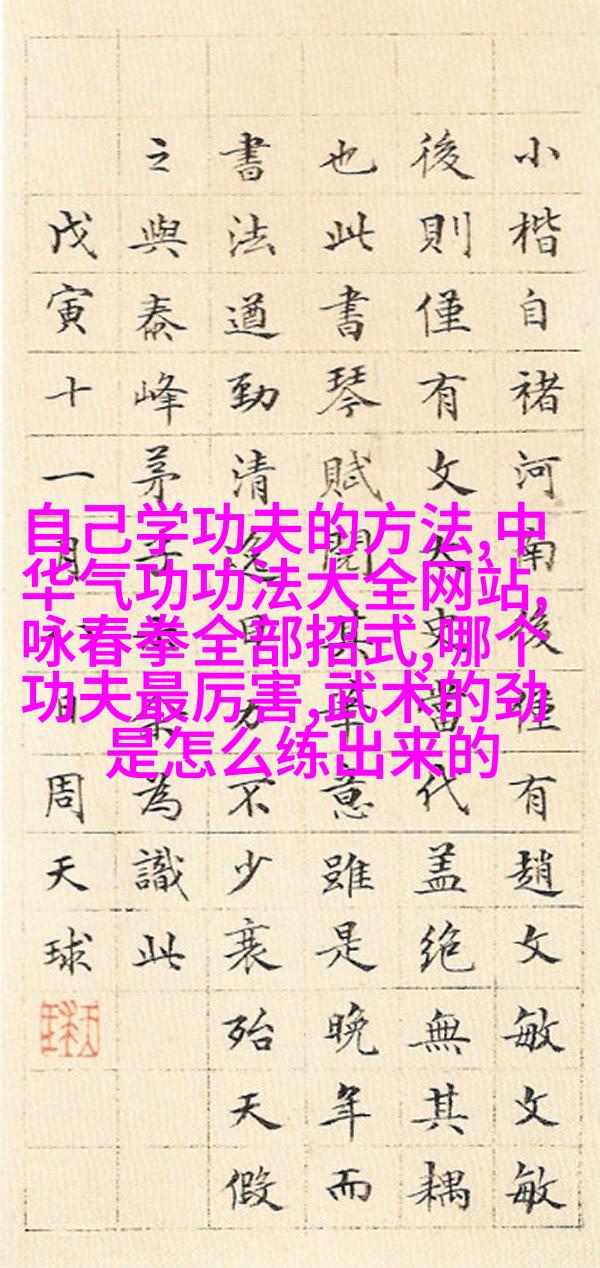 小楷自褚河南後僅有趙文敏文敏
後則僅有文太史當代盖絶無其耦
也此書琴賦閱其筆意雖是晚年而
書法遒勁清逸目力不少衰殆天假
之與泰峰茅子余為識此
戊寅十一月日周天球
自己学功夫的方法,中
华气功功法大全网站,
咏春拳全部招式,哪个
功夫最厉害,武术的劲
是怎么练出来的